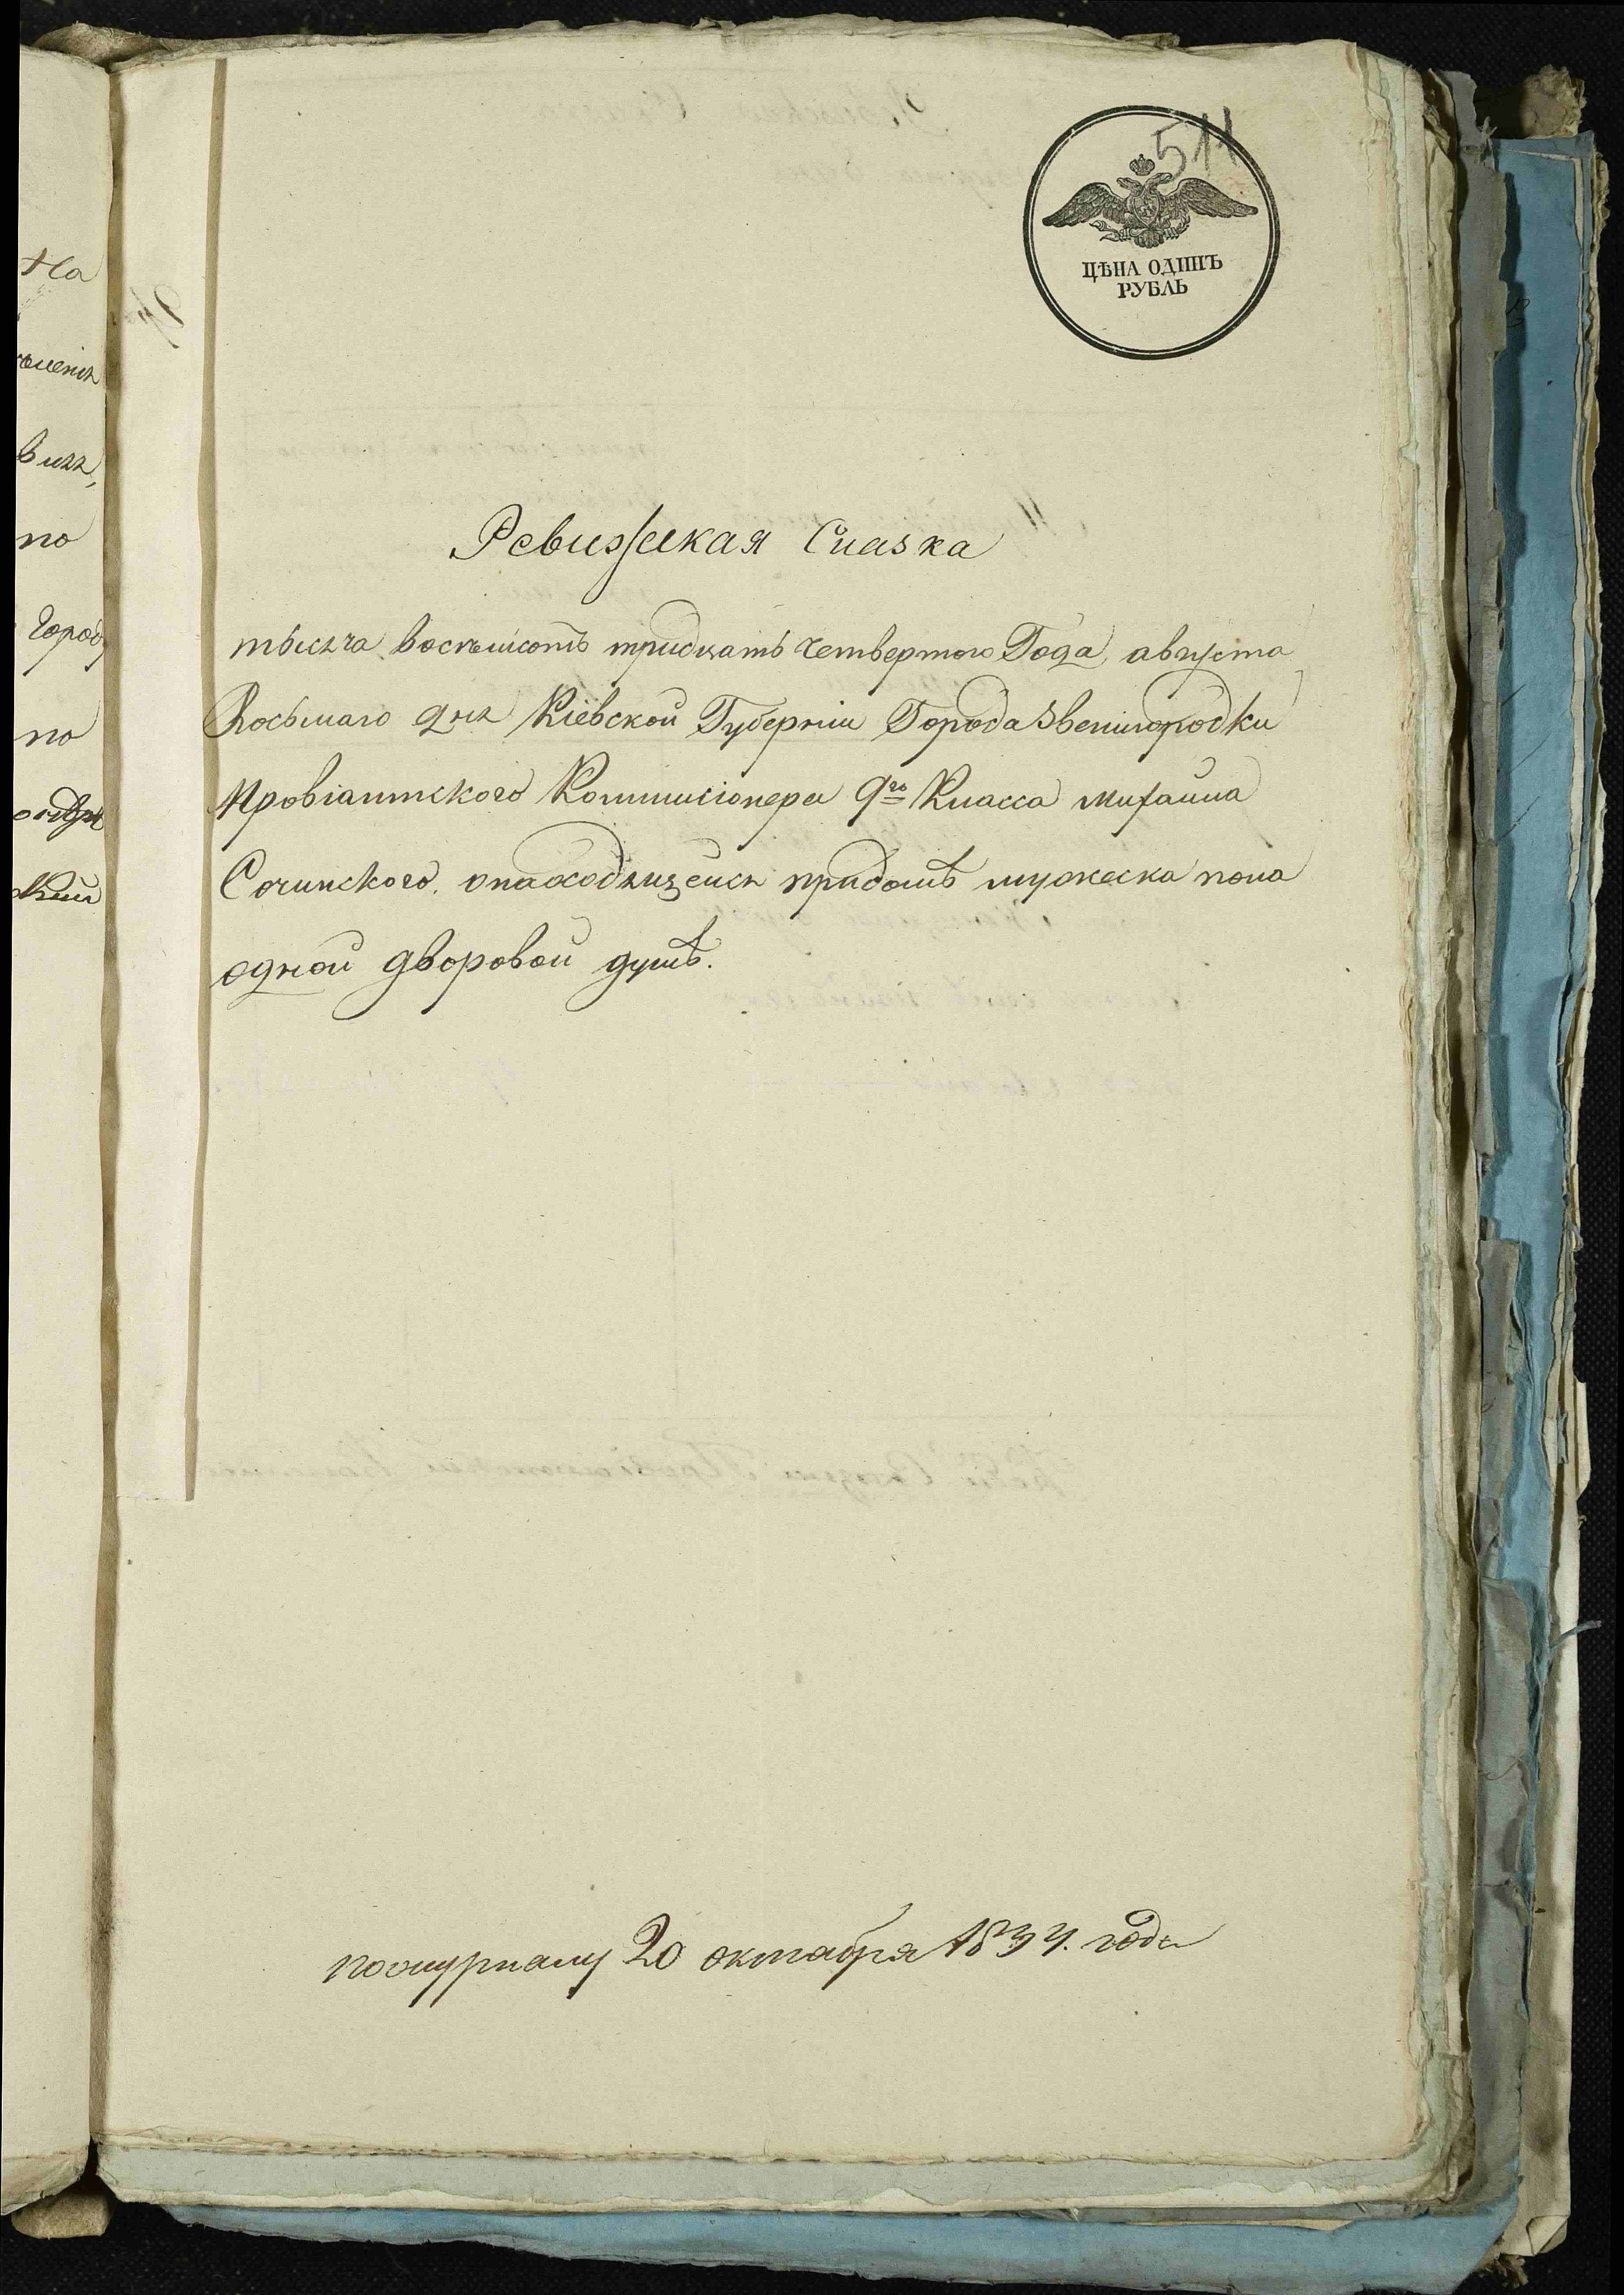 511
ЦѢНА ОДИНЪ
РУБЛЬ
Ревизская Сказка
тысяча восѣмсотъ тридцать четвертого Года, августа
Восьмаго дня Кіевской Губерніи Города Звенигородки
Провіантского Коммисіонера 9го Класса Михайла
Сочинского. онаходящейся придомѣ мужеска пола
одной дворовой душѣ.
пожурналу 20 октября 1834. года
На
вихъ,
по
Город
по